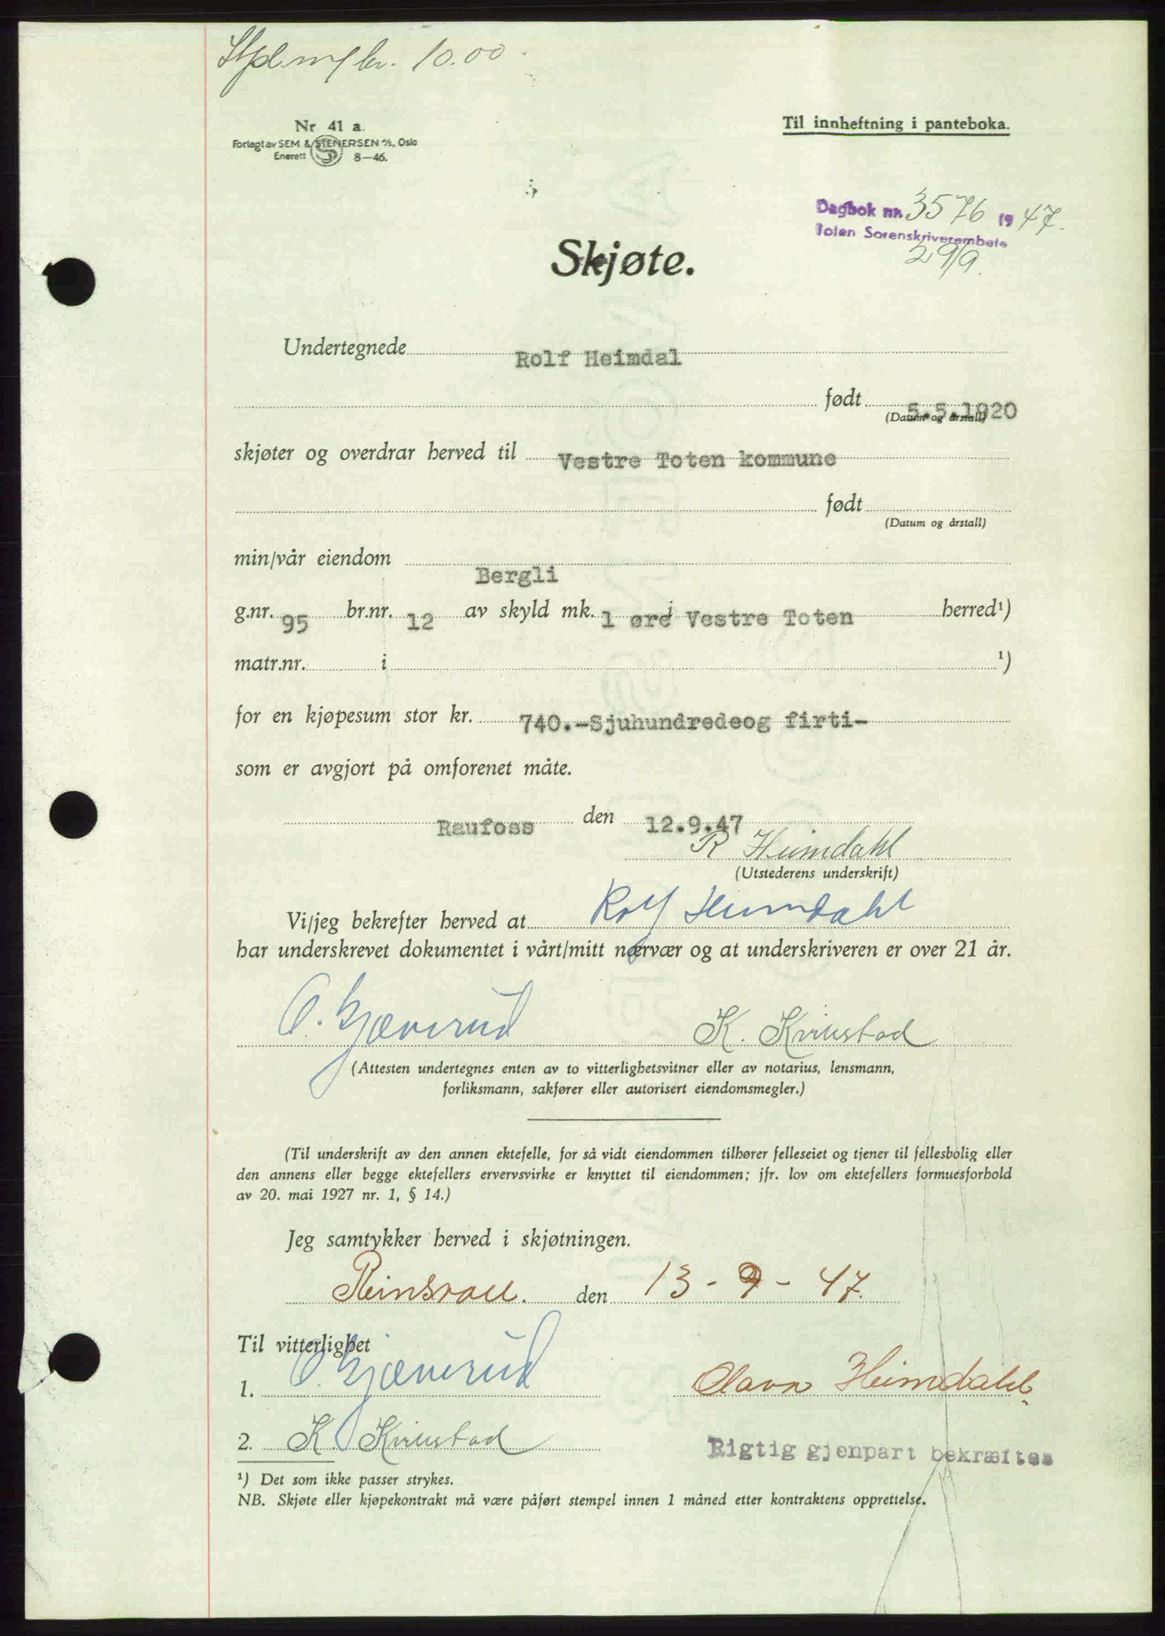 Stpl. m/ kr. 10.00
Nr. 41 a.
Til innheftning i panteboka.
Forlagt av SEM & STENERSEN A/S, Oslo
Enerett 8—46.
Dagbok nr. 3576 1947.
Toten Sorenskriverembete
29/9.
Skjøte.
Undertegnede Rolf Heimdal
født 5.5.1920
(Datum og årstall)
skjøter og overdrar herved til Vestre Toten kommune
født
(Datum og årstall)
min/vår eiendom Bergli
g.nr. 95 br.nr. 12 av skyld mk. 1 øre i Vestre Toten herred¹)
matr.nr. i ¹)
for en kjøpesum stor kr. 740.-Sjuhundredeog firti-
som er avgjort på omforenet måte.
Raufoss den 12.9.47
R Heimdahl
(Utstederens underskrift)
Vi/jeg bekrefter herved at Rolf Heimdahl
har underskrevet dokumentet i vårt/mitt nærvær og at underskriveren er over 21 år.
O. Gjæverud K. Kvikstad
(Attesten undertegnes enten av to vitterlighetsvitner eller av notarius, lensmann,
forliksmann, sakfører eller autorisert eiendomsmegler.)
(Til underskrift av den annen ektefelle, for så vidt eiendommen tilhører felleseiet og tjener til fellesbolig eller
den annens eller begge ektefellers ervervsvirke er knyttet til eiendommen; jfr. lov om ektefellers formuesforhold
av 20. mai 1927 nr. 1, § 14.)
Jeg samtykker herved i skjøtningen.
Reinsvoll. den 13-9-47.
Til vitterlighet
1. O. Gjæverud Olava Heimdahl.
2. K. Kvikstad
Rigtig gjenpart bekræftes
¹) Det som ikke passer strykes.
NB. Skjøte eller kjøpekontrakt må være påført stempel innen 1 måned etter kontraktens opprettelse.